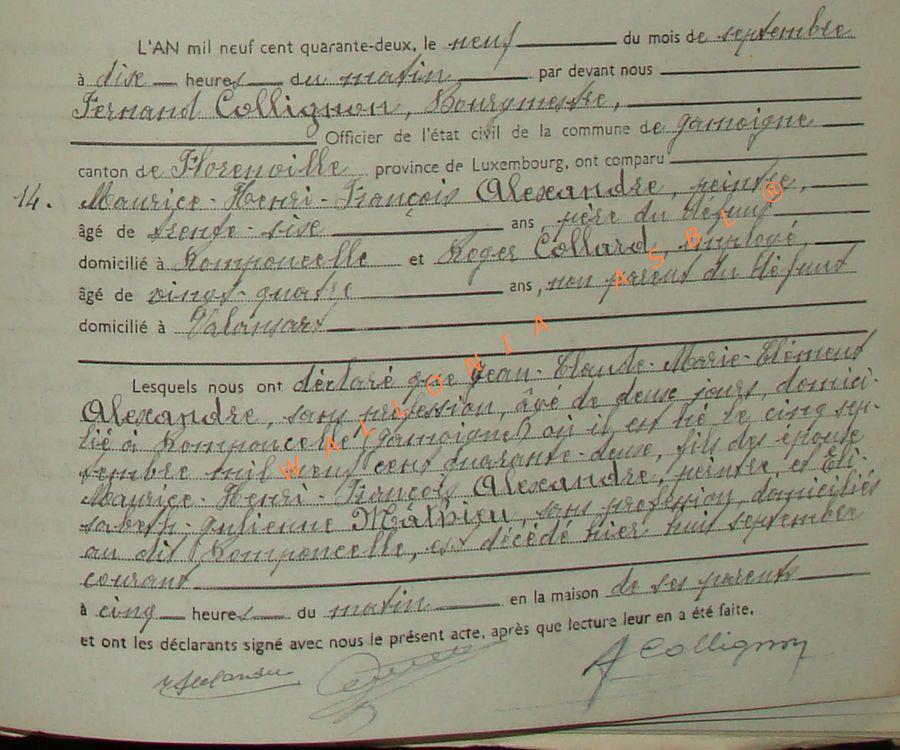 L'AN mil neuf cent quarante-deux, le neuf du mois de septembre
à dixe heures du matin par devant nous
Fernand Collignon, Bourgmestre,
Officier de l'état civil de la commune de Jamoigne
canton de Florenville province de Luxembourg, ont comparu
14. Maurice-Henri-François Alexandre, peintre,
âgé de trente-sixe ans, père du défunt
domicilié à Romponcelle et Roger Collard, employé,
âgé de vingt-quatre ans, non parent du défunt
domicilié à Valansart
Lesquels nous ont déclaré que Jean-Claude-Marie-Clément
Alexandre, sans profession, âgé de deux jours, domici-
lié à Romponcelle (Jamoigne) où il est né le cinq sep-
tembre mil neuf cent quarante-deux, fils des époux
Maurice-Henri-François Alexandre, peintre, et Eli-
sabeth-Julienne Mathieu, sans profession, domiciliés
au dit Romponcelle, est décédé hier huit septembre
courant
à cinq heures du matin en la maison de ses parents
et ont les déclarants signé avec nous le présent acte, après que lecture leur en a été faite.
A Collignon
WALLONIA ASBL ®